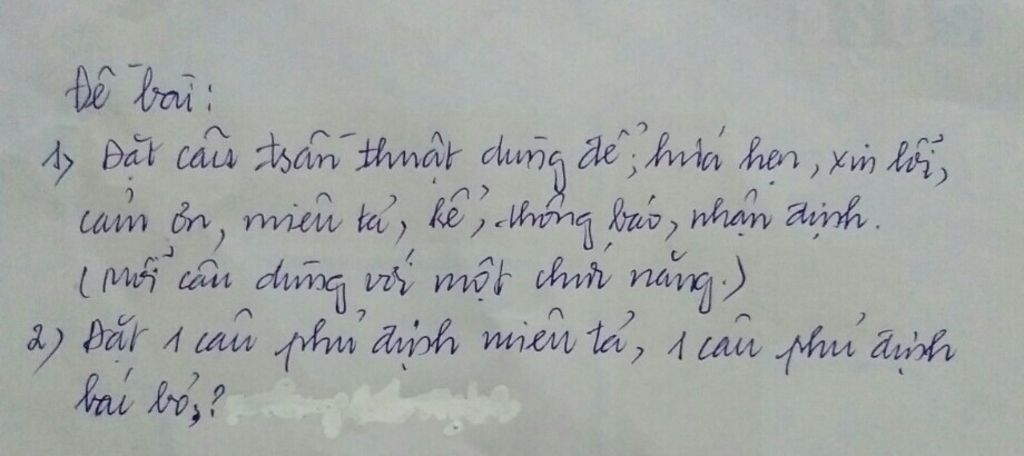 Đề bài:
1) Đặt câu trần thuật dùng để; hứa hẹn, xin lỗi,
cảm ơn, miêu tả, kể, thông báo, nhận định.
(Mỗi câu dùng với một chức năng.)
2) Đặt 1 câu phủ định miêu tả, 1 câu phủ định
bác bỏ,?